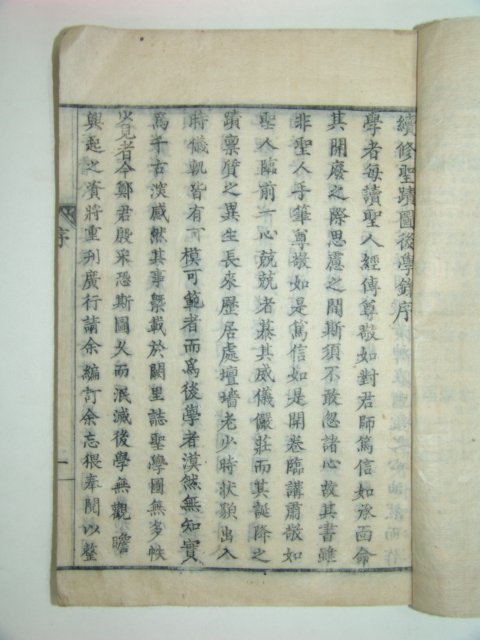 續修聖蹟圖後學錄序
學者每讀聖人經傳尊敬如對君師篤信如承面命
其開廢之際思慮之間斯須不敢忽諸心故其書雖
非聖人手筆尊敬如是篤信如是開卷臨講肅敬如
聖人臨前一心兢兢者慕其威儀儼莊而其誕降之
蹟禀質之異生長來歷居處壇墻老少時狀額出入
時儀軌皆有可模可範者而爲後學者漠然無知實
爲千古深感然其事槩載於闕里誌聖學圖無多帙
見者今鄭君殷采恐斯圖久而泯滅後學無觀瞻
興起之資將重刊廣行請余編訂余忘猥率閱以整
序